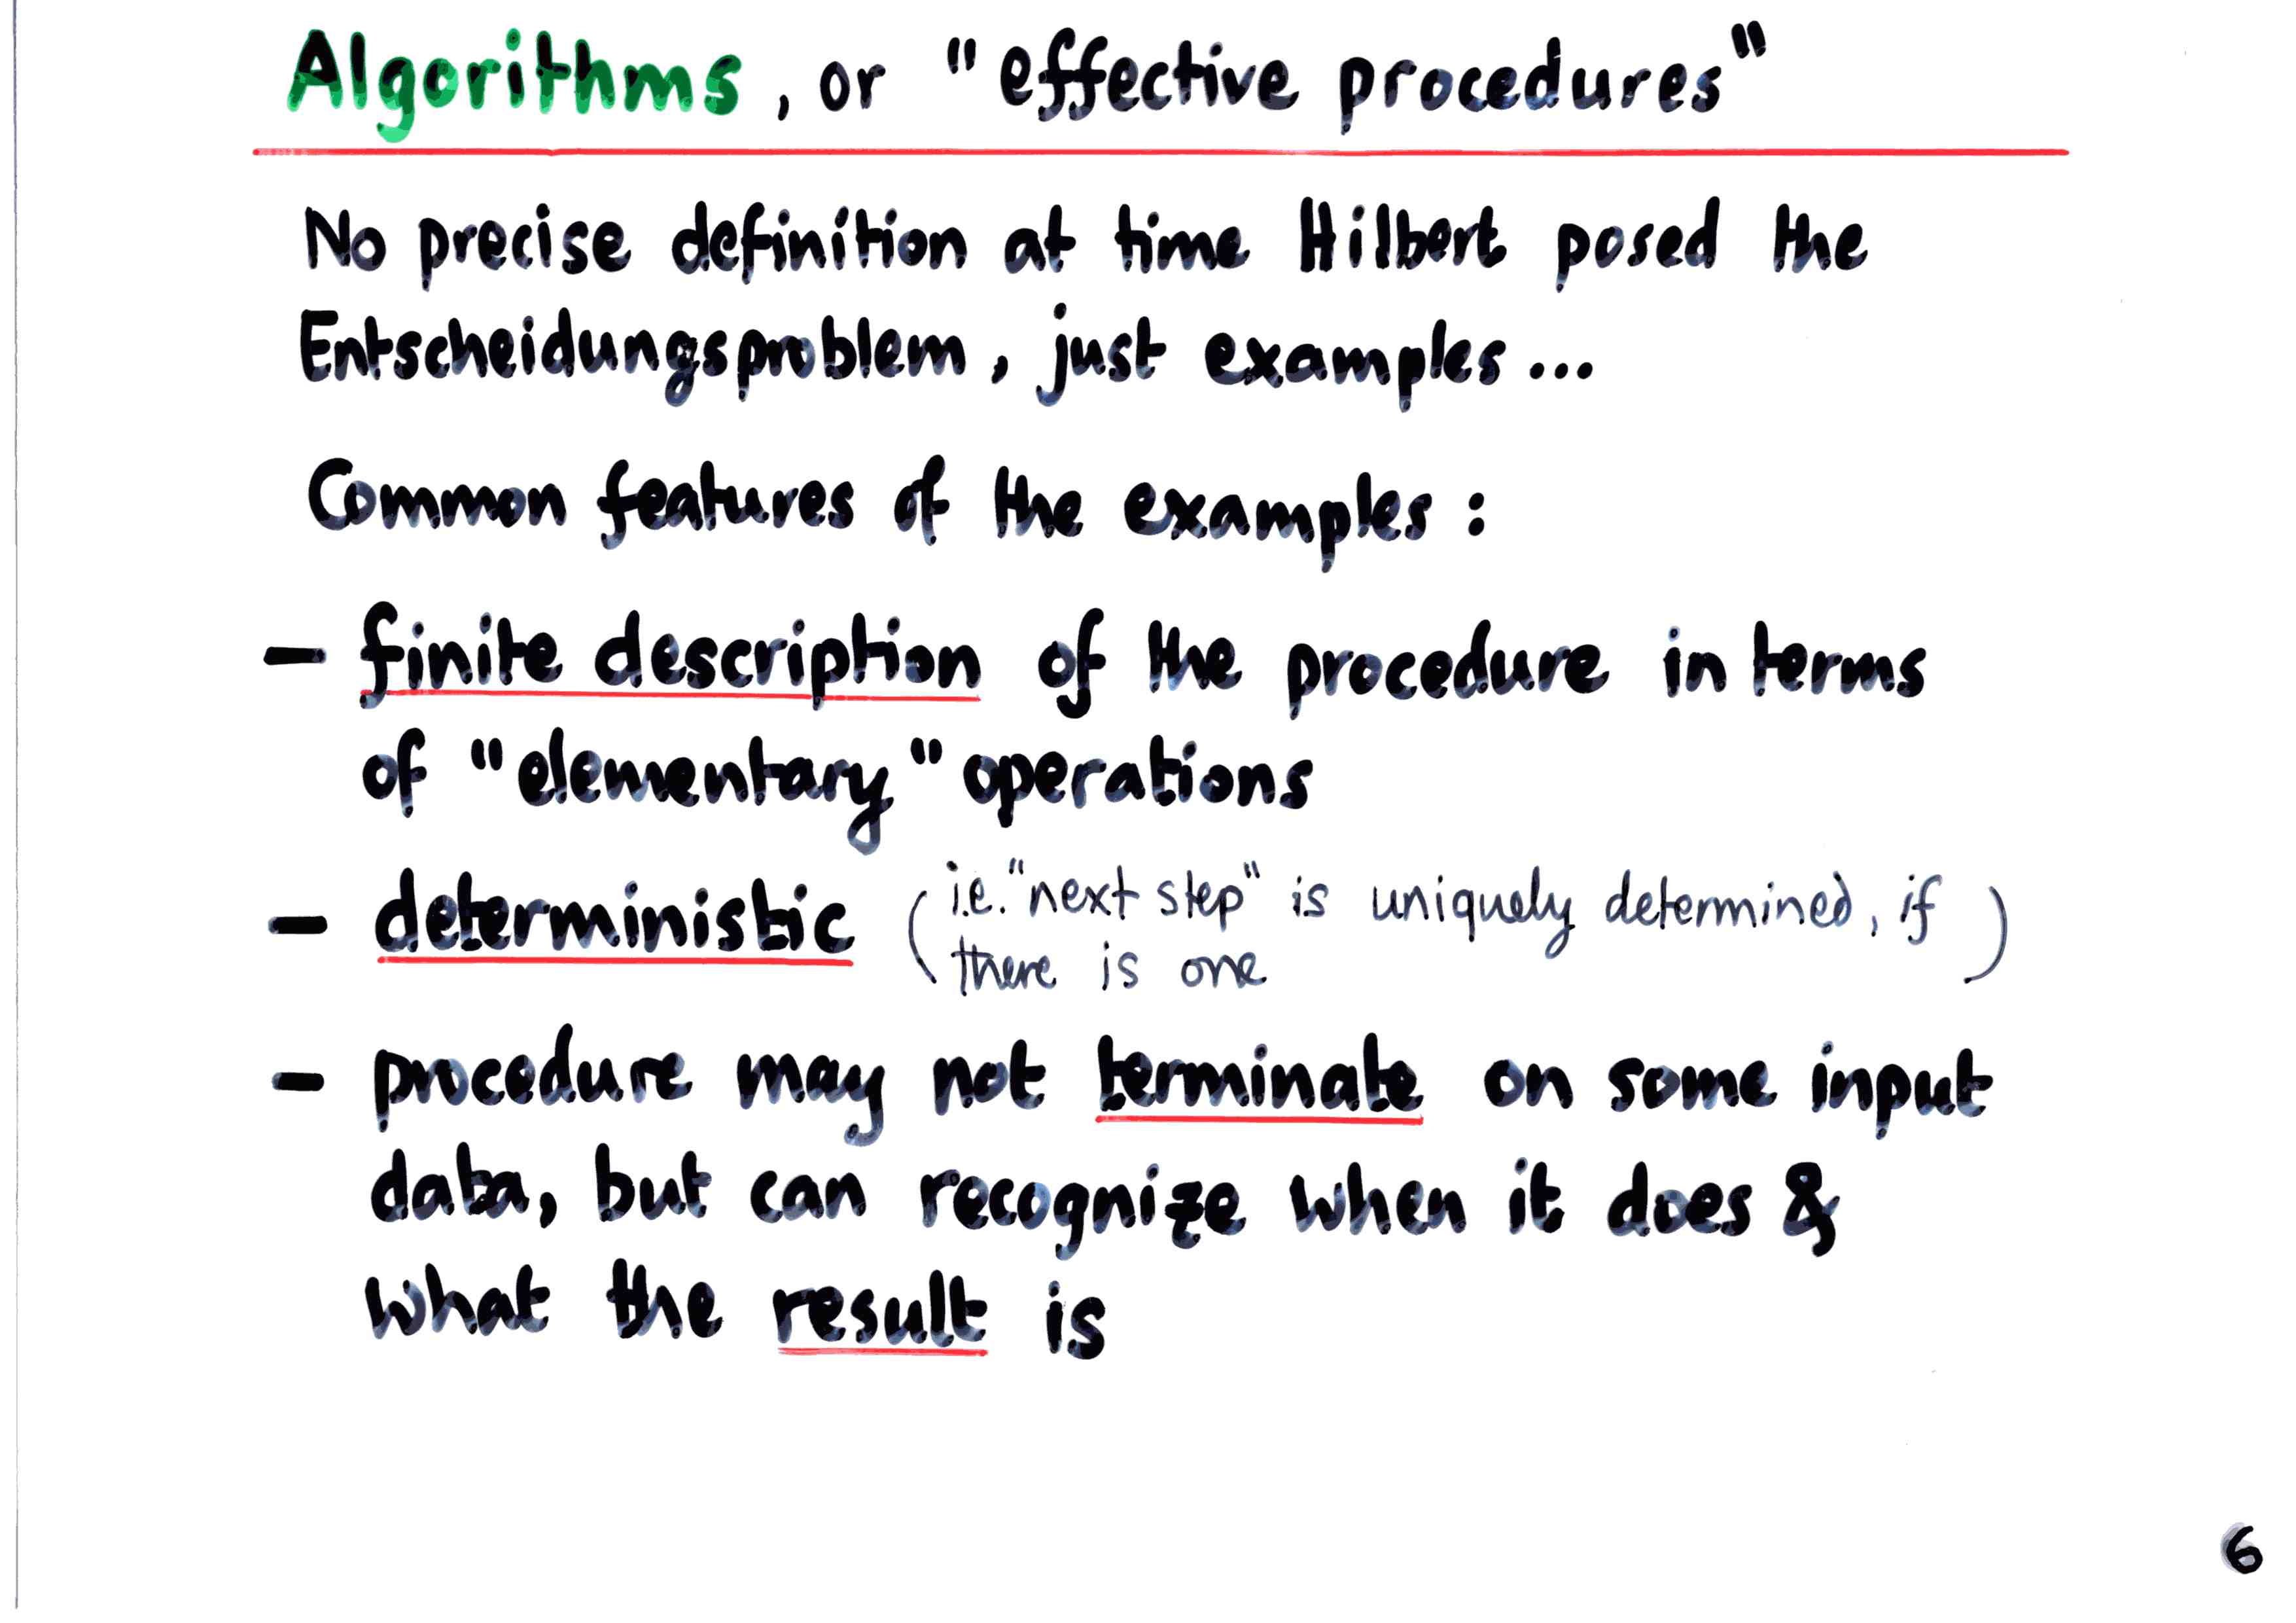 Algorithms, or "effective procedures"
No precise definition at time Hilbert posed the
Entscheidungsproblem, just examples...
Common features of the examples:
- finite description of the procedure in terms
of "elementary" operations
- deterministic (i.e. "next step" is uniquely determined, if
there is one)
- procedure may not terminate on some input
data, but can recognize when it does &
what the result is
6